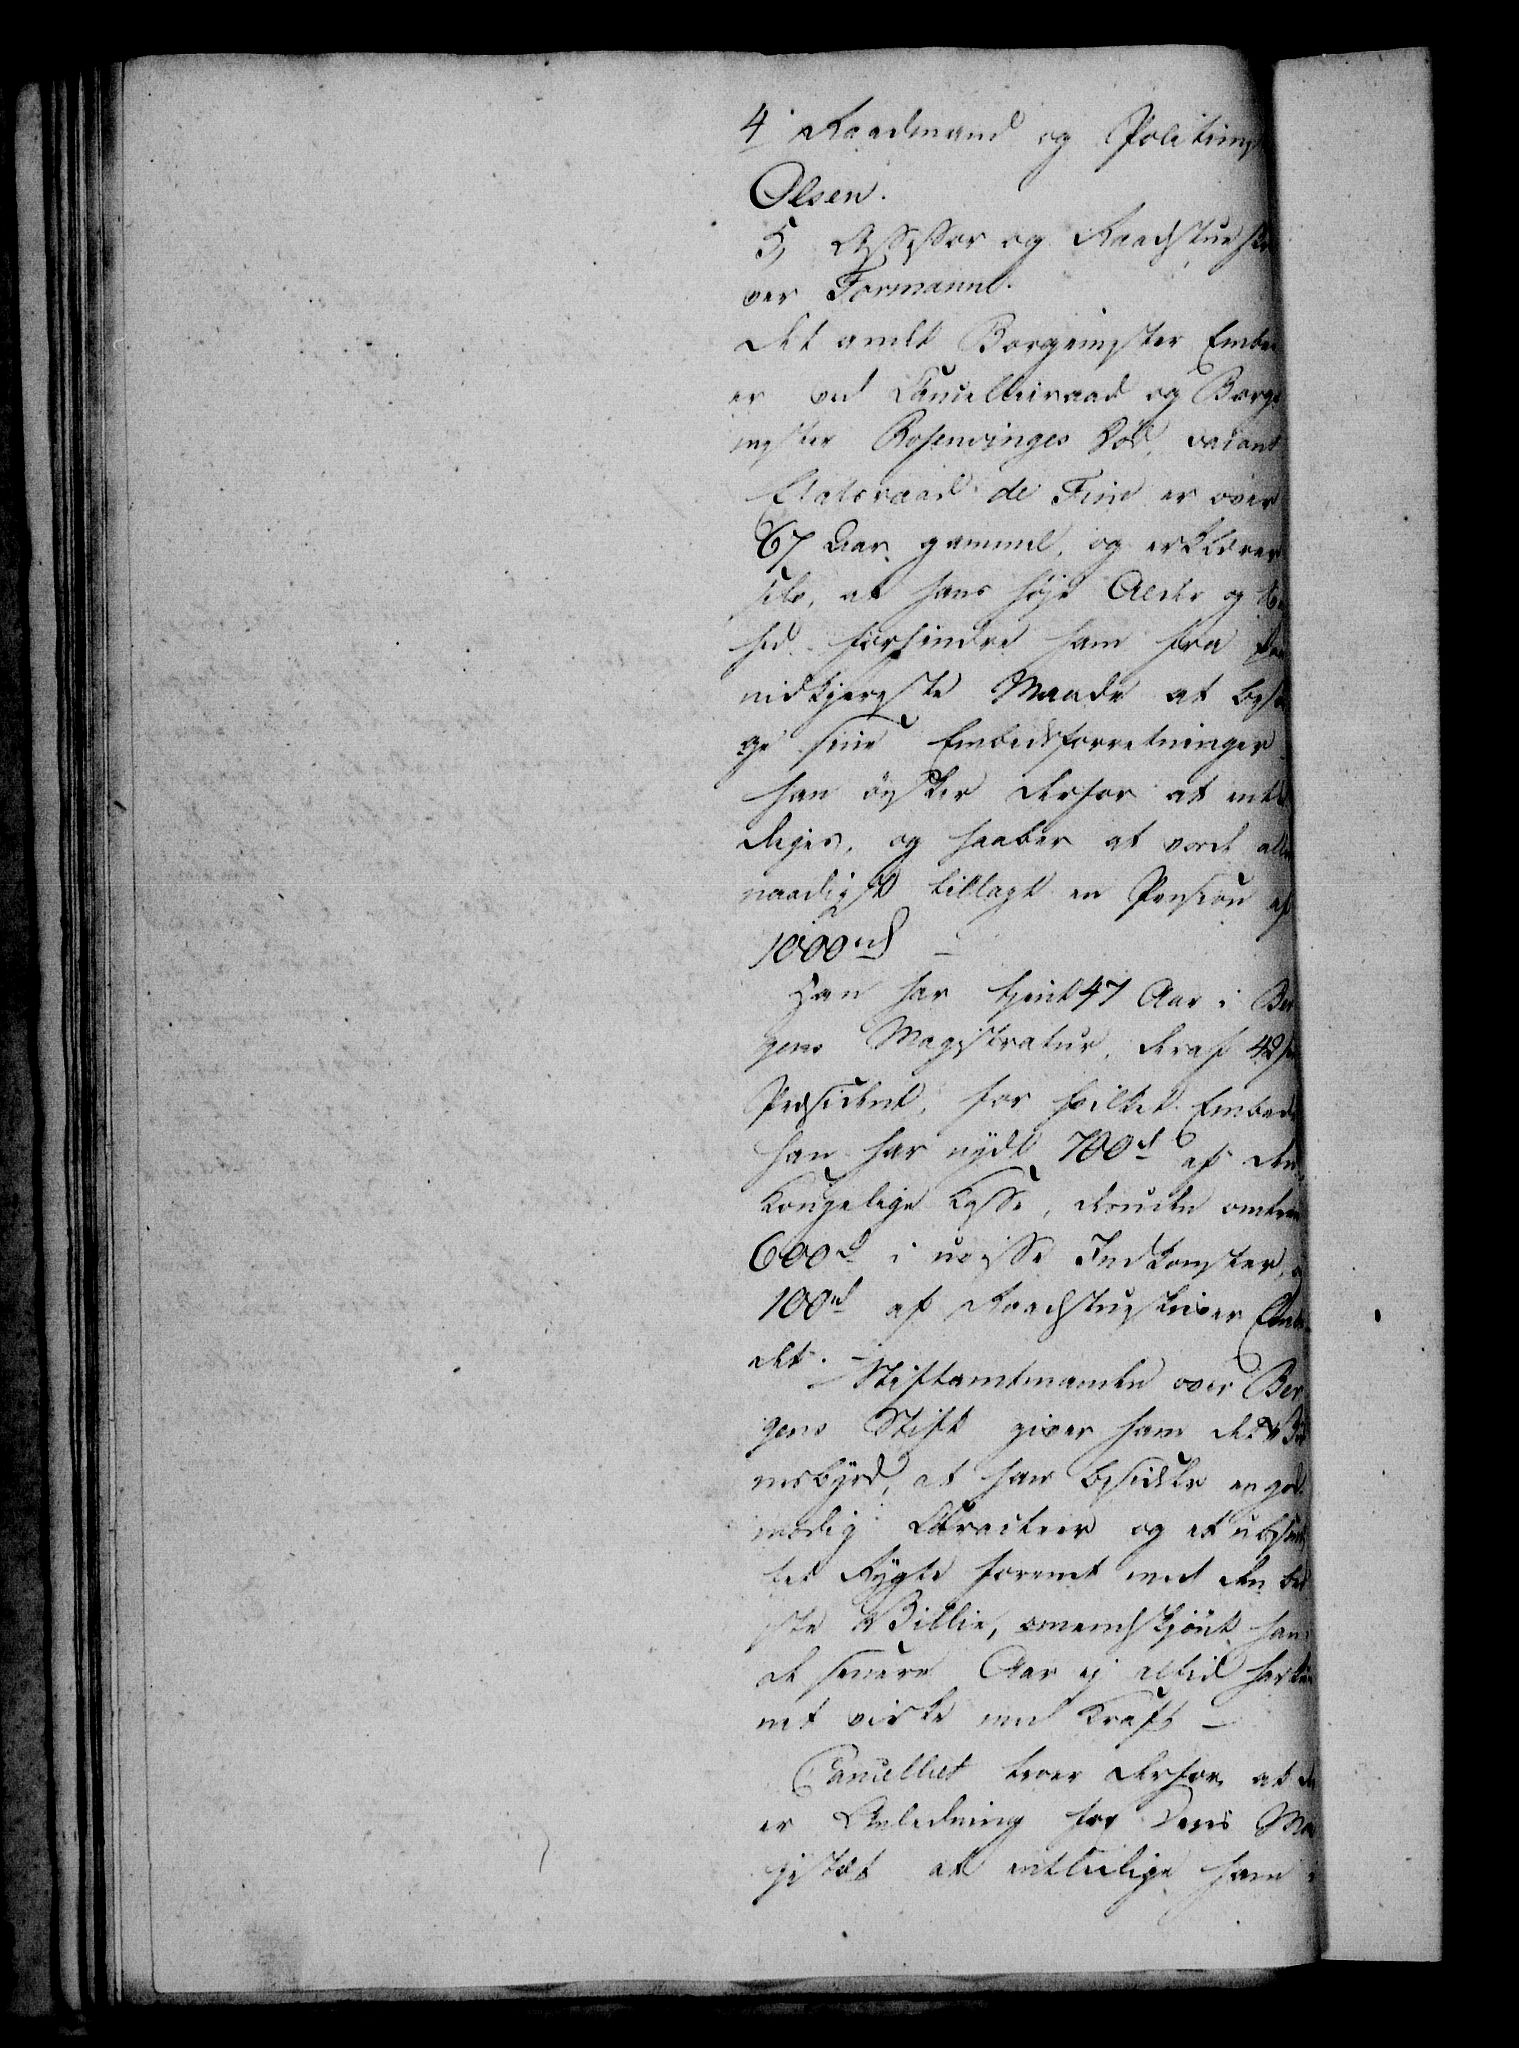 4 Raadmand og Politimes
Olsen.
5, Assessor og Raadstueskri
ver Formann.
Det andet Borgemester Embe
er ved Cancelliraad og Borge
mester Rosenvinges Død, vacant
Etatsraad de Fine er over
67 Aar gammel, og erklærer
selv, at hans høje Alder og
hed forhindre ham fra paa
nidkjereste Maade at besør
ge sine Embedsforretninger.
han ønsker derfor at entle
diges, og haaber at vorde aller
naadigst tillagt en Pension af
1000 rd
Han har tjent 47 Aar i Ber
gens Magistratur, deraf 42 som
Præsident, for hvilket Embede
han har nydt 700 rd af den
Kongelige Casse, desuden omtrent
600 rd i uvisse Indkomster, og
100 rd af Raadstueskriver Embe
det. Stiftamtmanden over Ber
gens Stift giver ham det Vid
nesbyrd, at han besidder en god
modig Caracteer og et ubesmit
tet Rygte forenet med den be
ste Villie, omendskjønt han
de senere Aar ej altid har kun
net virke med Kraft
Cancelliet troer derfor, at der
er Anledning for Deres Ma
jestæt at entledige ham i